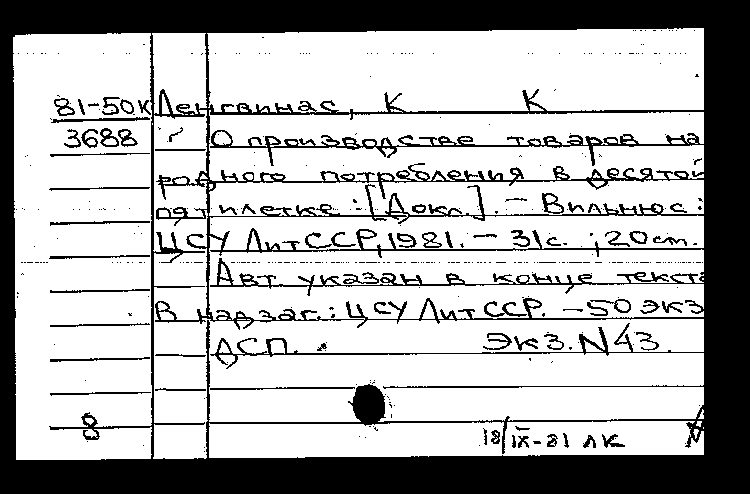 81-50К Ленгвинас, К К
3688 О производстве товаров на
родного потребления в десятой
пятилетке: [Докл.]. - Вильнюс:
ЦСУ ЛитССР, 1981. - 31с. ; 20 см.
Авт. указан в конце текста
В надзаг.: ЦСУ ЛитССР. - 50 экз
ДСП. Экз. N43.
8
18/IX-81 ЛК